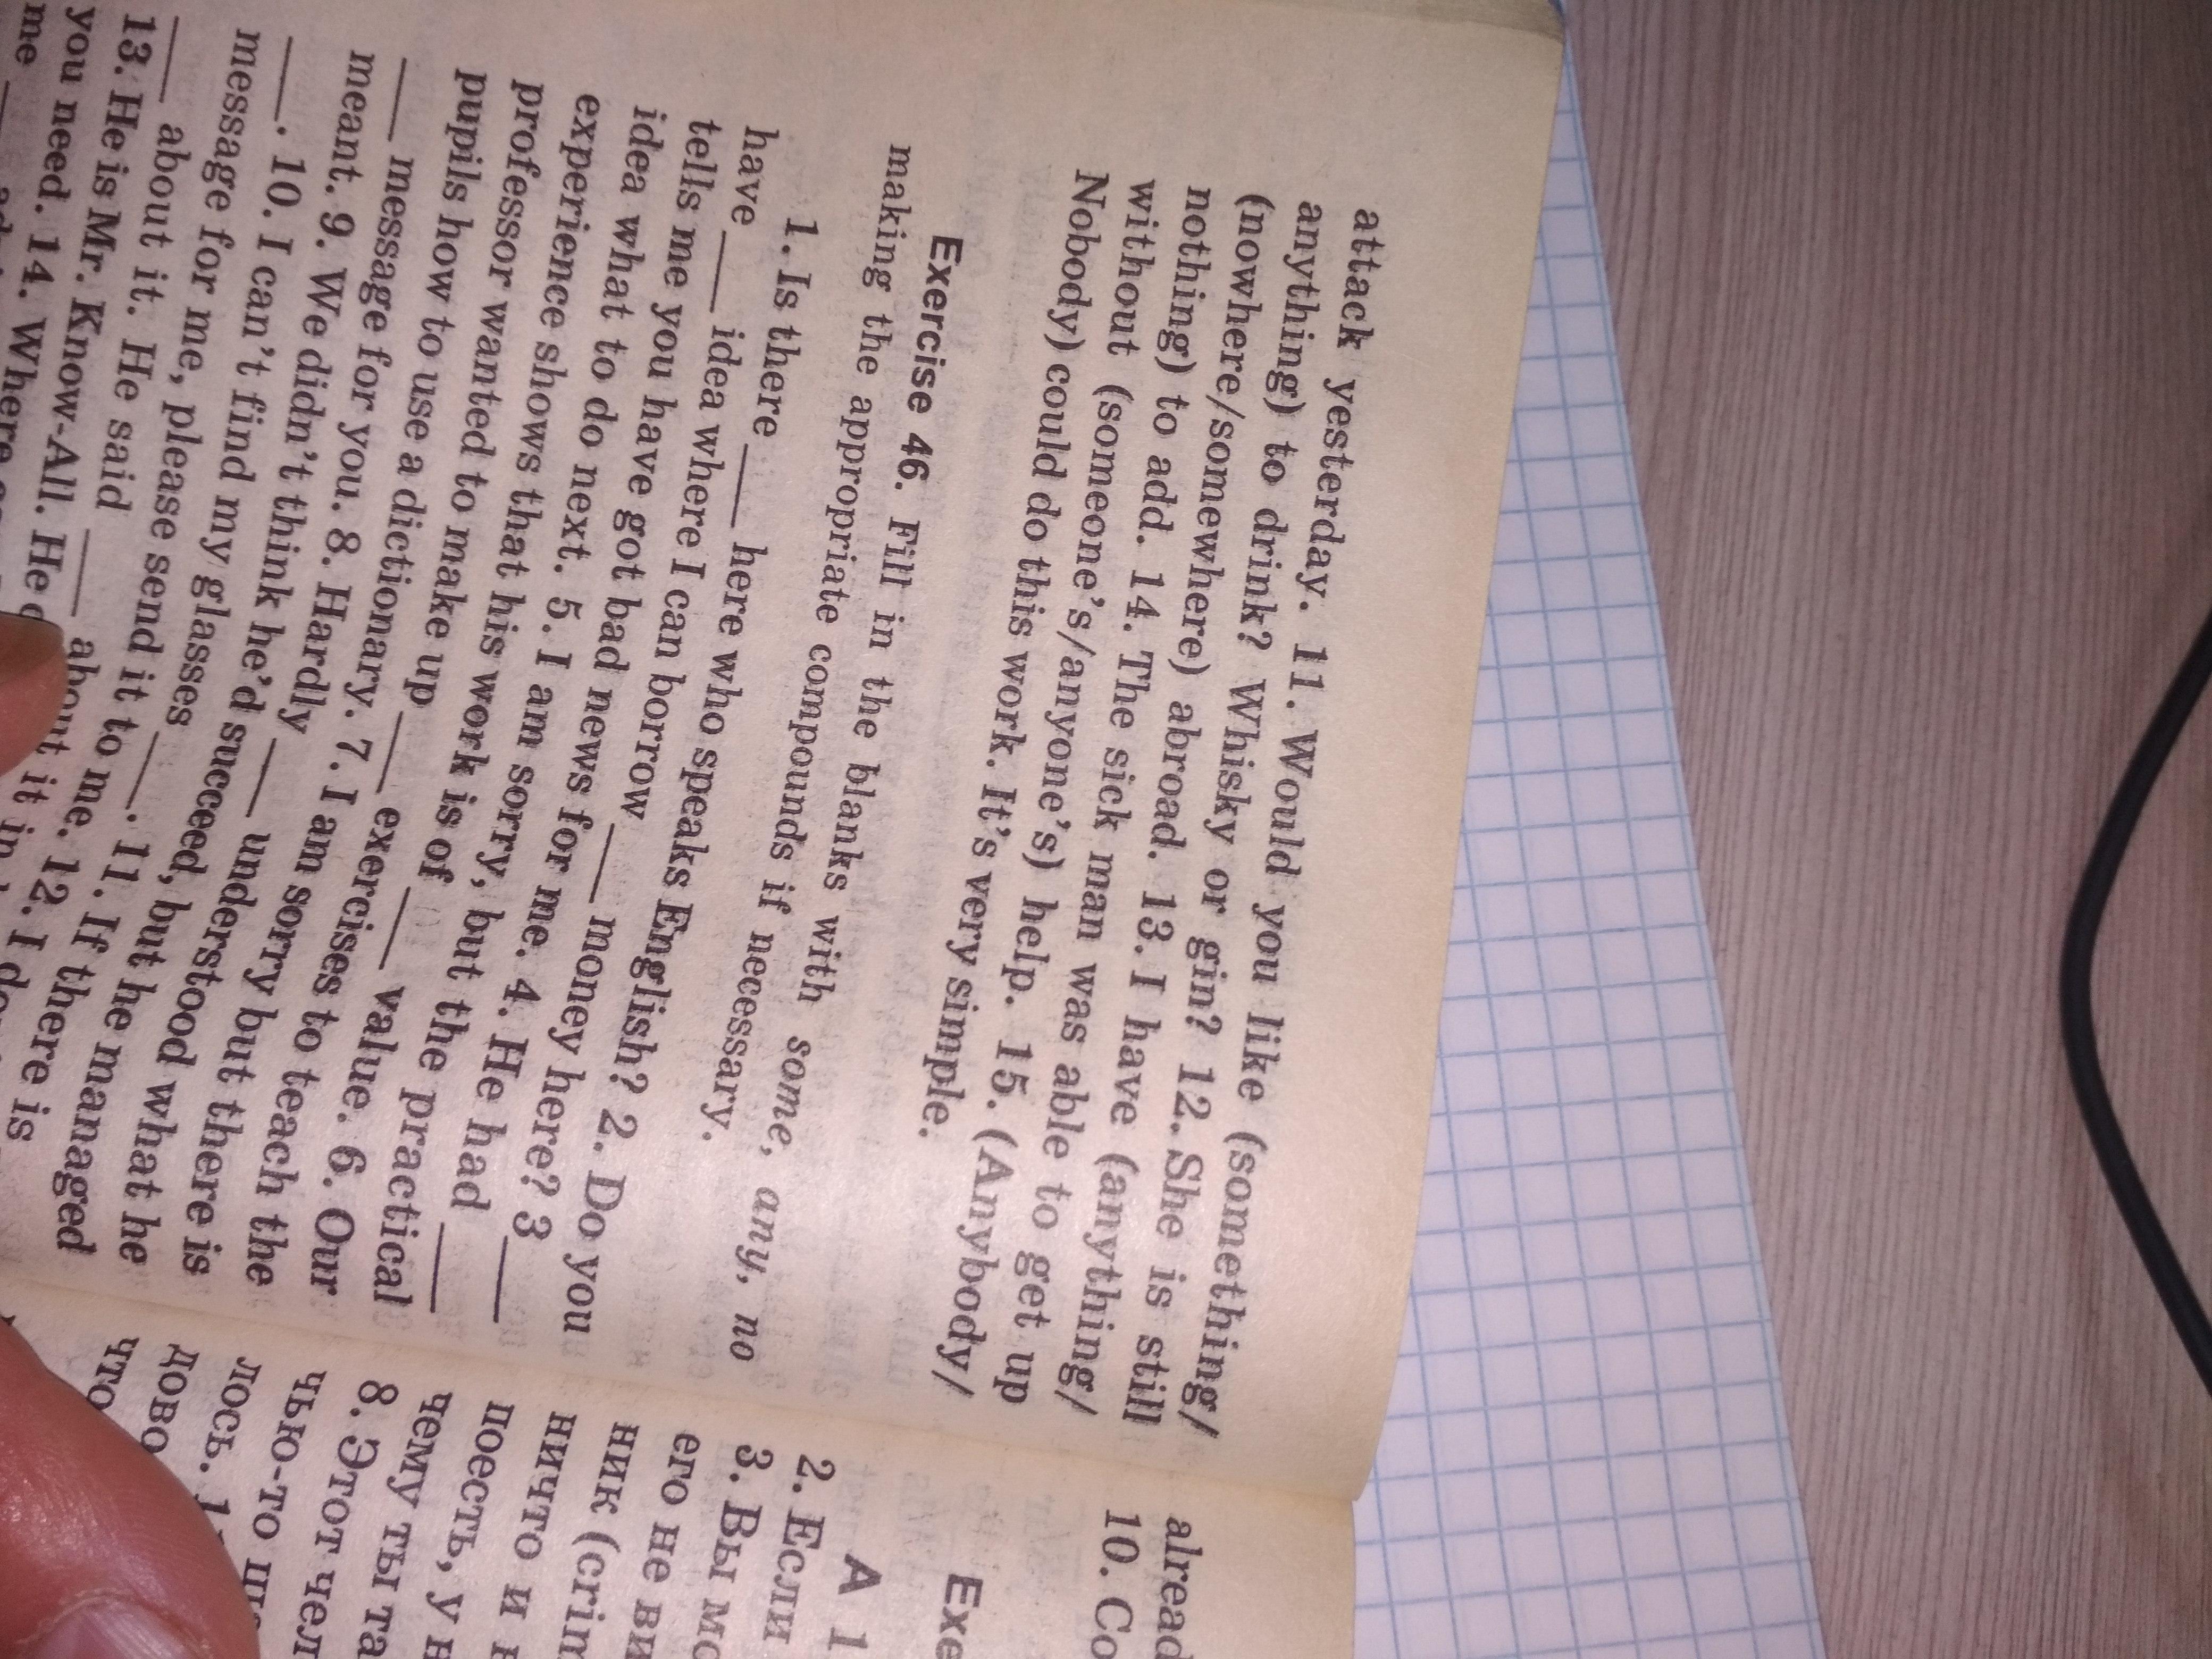 attack yesterday. 11. Would you like (something/
anything) to drink? Whisky or gin? 12. She is still
(nowhere/somewhere) abroad. 13. I have (anything/
nothing) to add. 14. The sick man was able to get up
without (someone's/anyone's) help. 15. (Anybody/
Nobody) could do this work. It's very simple.
Exercise 46. Fill in the blanks with some, any, no
making the appropriate compounds if necessary.
1. Is there ___ here who speaks English? 2. Do you
have ___ idea where I can borrow ___ money here? 3 ___
tells me you have got bad news for me. 4. He had ___
idea what to do next. 5. I am sorry, but the practical
experience shows that his work is of ___ value. 6. Our
professor wanted to make up ___ exercises to teach the
pupils how to use a dictionary. 7. I am sorry but there is
___ message for you. 8. Hardly ___ understood what he
meant. 9. We didn't think he'd succeed, but he managed
___. 10. I can't find my glasses ___. 11. If there is
message for me, please send it to me. 12. I
___ about it. He said ___ about it
13. He is Mr. Know-All. He
you need. 14. Where
me ___
alread
10. Co
Exe
A 1
2. Если
3. Вы мо
его не ви
ник (crim
ничто и н
поесть, у н
чему ты та
8. Этот чел
чью-то
лось.
дово
что